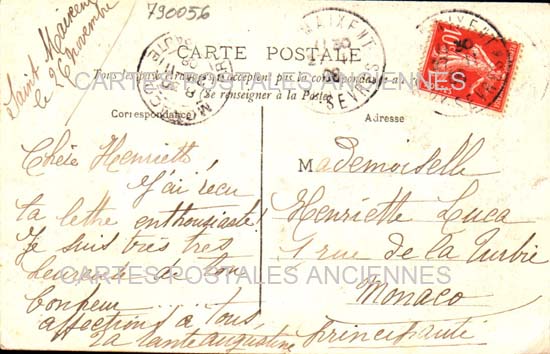 790056
Saint Maixent
le 26 novembre
CARTE POSTALE
Tous les pays étrangers n'acceptent pas la correspondance au recto
(se renseigner à la Poste)
CARTES POSTALES ANCIENNES
MAIXENT
SEVRES
10
Correspondance
Adresse
Chère Henriette
J'ai reçu
ta lettre enthousiaste!
Je suis très très
heureuse de ton
bonheur
affections à tous,
ta tante augustine
Mademoiselle
Henriette Luca
1 rue de la Turbie
Monaco
Principauté
CARTES POSTALES ANCIENNES